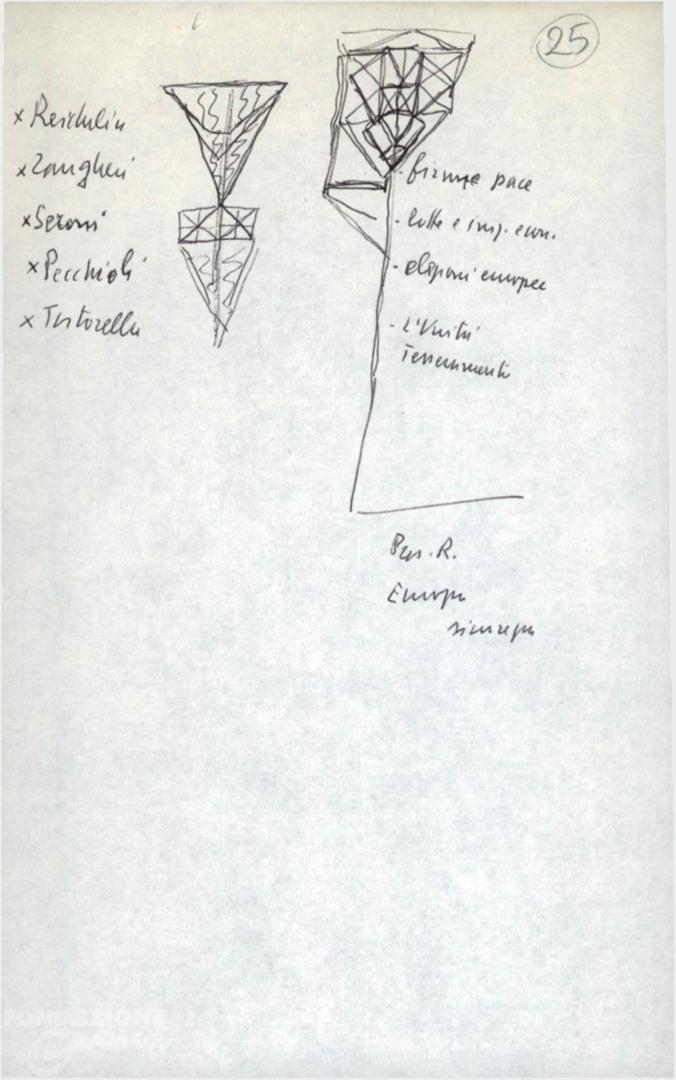 25
x Reichlin
x Zangheri
x Seroni
x Pecchioli
x Tortorella
- firme pace
- lotte e imp. econ.
- elezioni europee
- L'Unità
Tesseramento
Pap. R.
Europa
sicurezza
FONDAZIONE
Gramsci